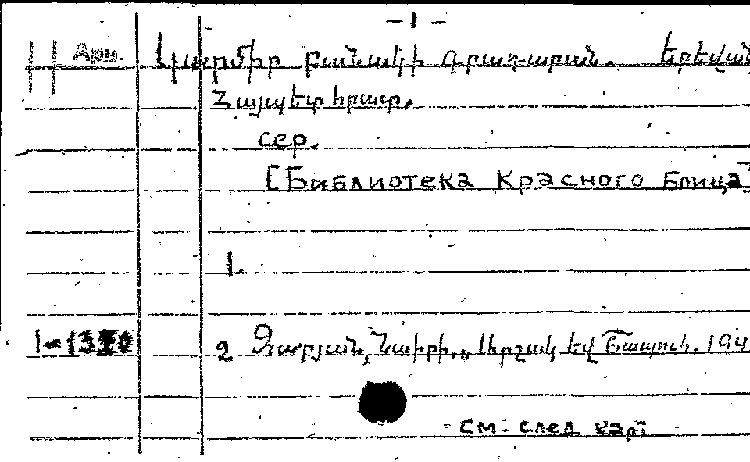 - 1 -
Арм. Կարմիր բանակի գրադարան. Երևան
Հայպետհրատ.
сер.
[Библиотека Красного бойца]
1.
2 Զարյան, Նաիրի. Արշակ եվ Շապուհ. 194
см. след карт